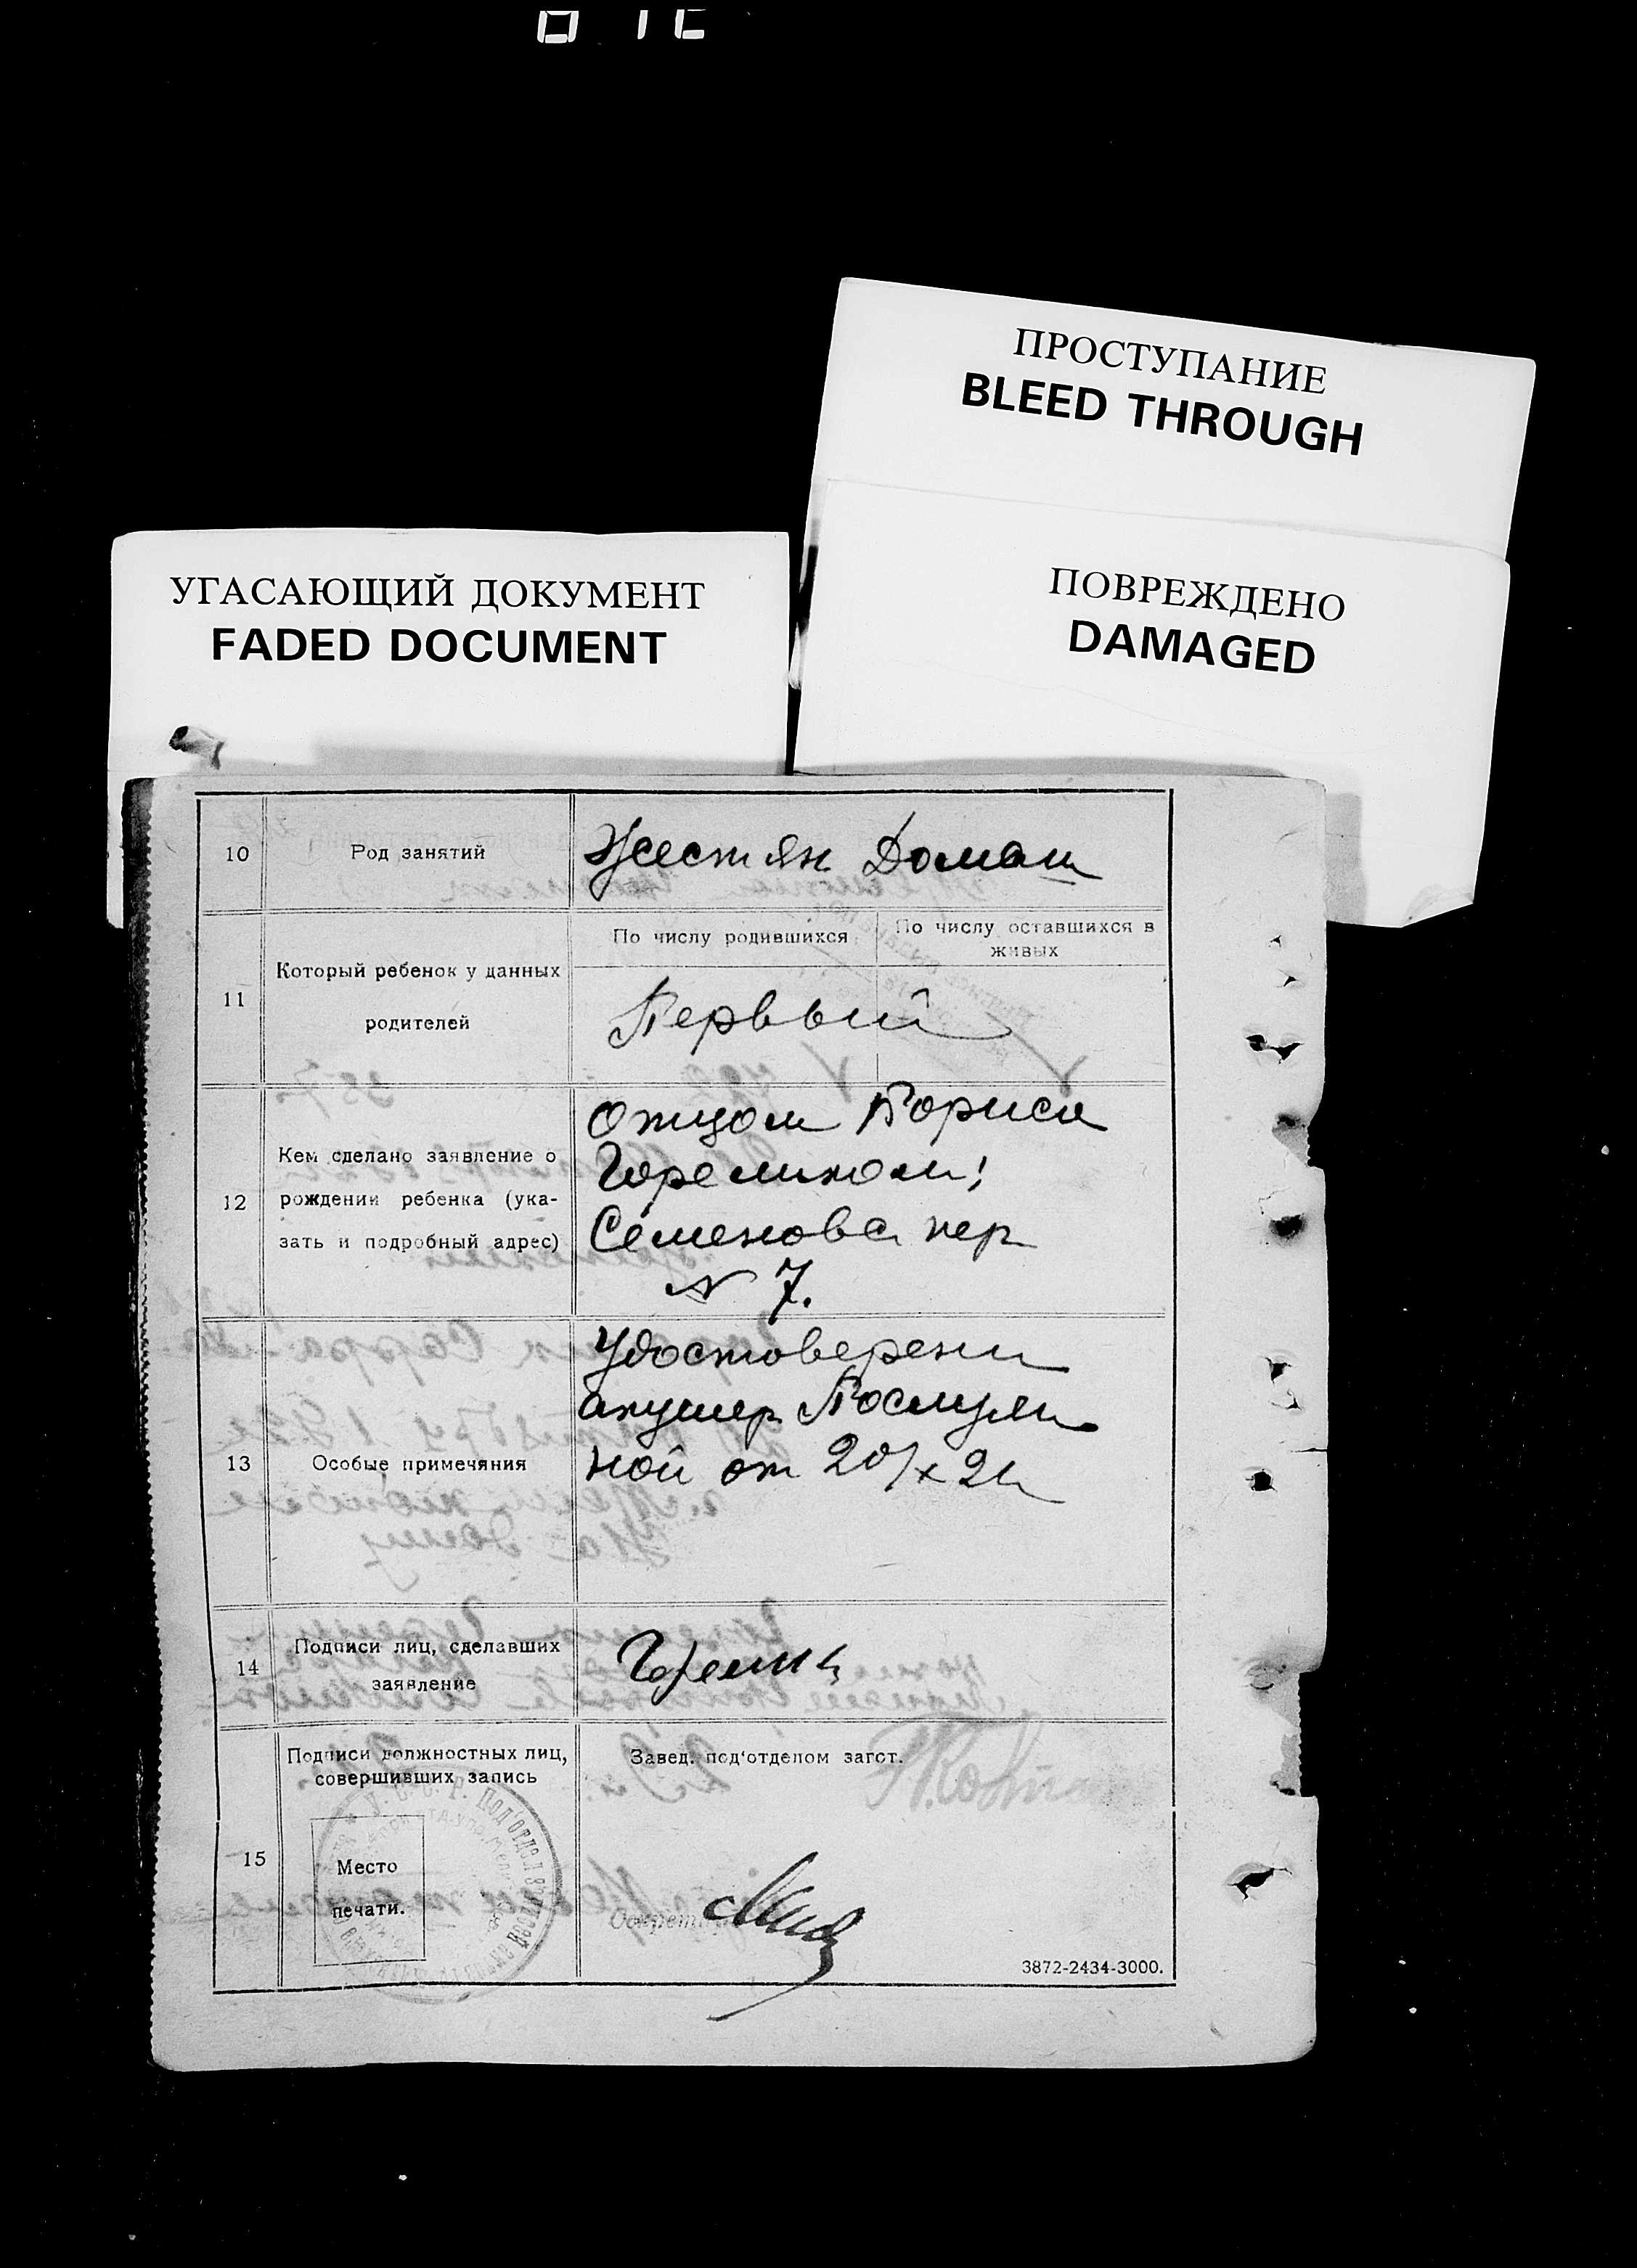 ПРОСТУПАНИЕ
BLEED THROUGH
УГАСАЮЩИЙ ДОКУМЕНТ
FADED DOCUMENT
ПОВРЕЖДЕНО
DAMAGED
10 Род занятий Жестян Домаш
11 Который ребенок у данных
родителей
По числу родившихся
По числу оставшихся в
живых
Первый
12 Кем сделано заявление о
рождении ребенка (ука-
зать и подробный адрес)
отцом Бориса
Гореликом
Семенова пер
N 7.
13 Особые примечания
Удостоверени
акушер
ной от 20/x 21
14 Подписи лиц, сделавших
заявление
15 Подписи должностных лиц,
совершивших запись
Место
печати.
Завед. под'отделом загст.
Секрет
3872-2434-3000.